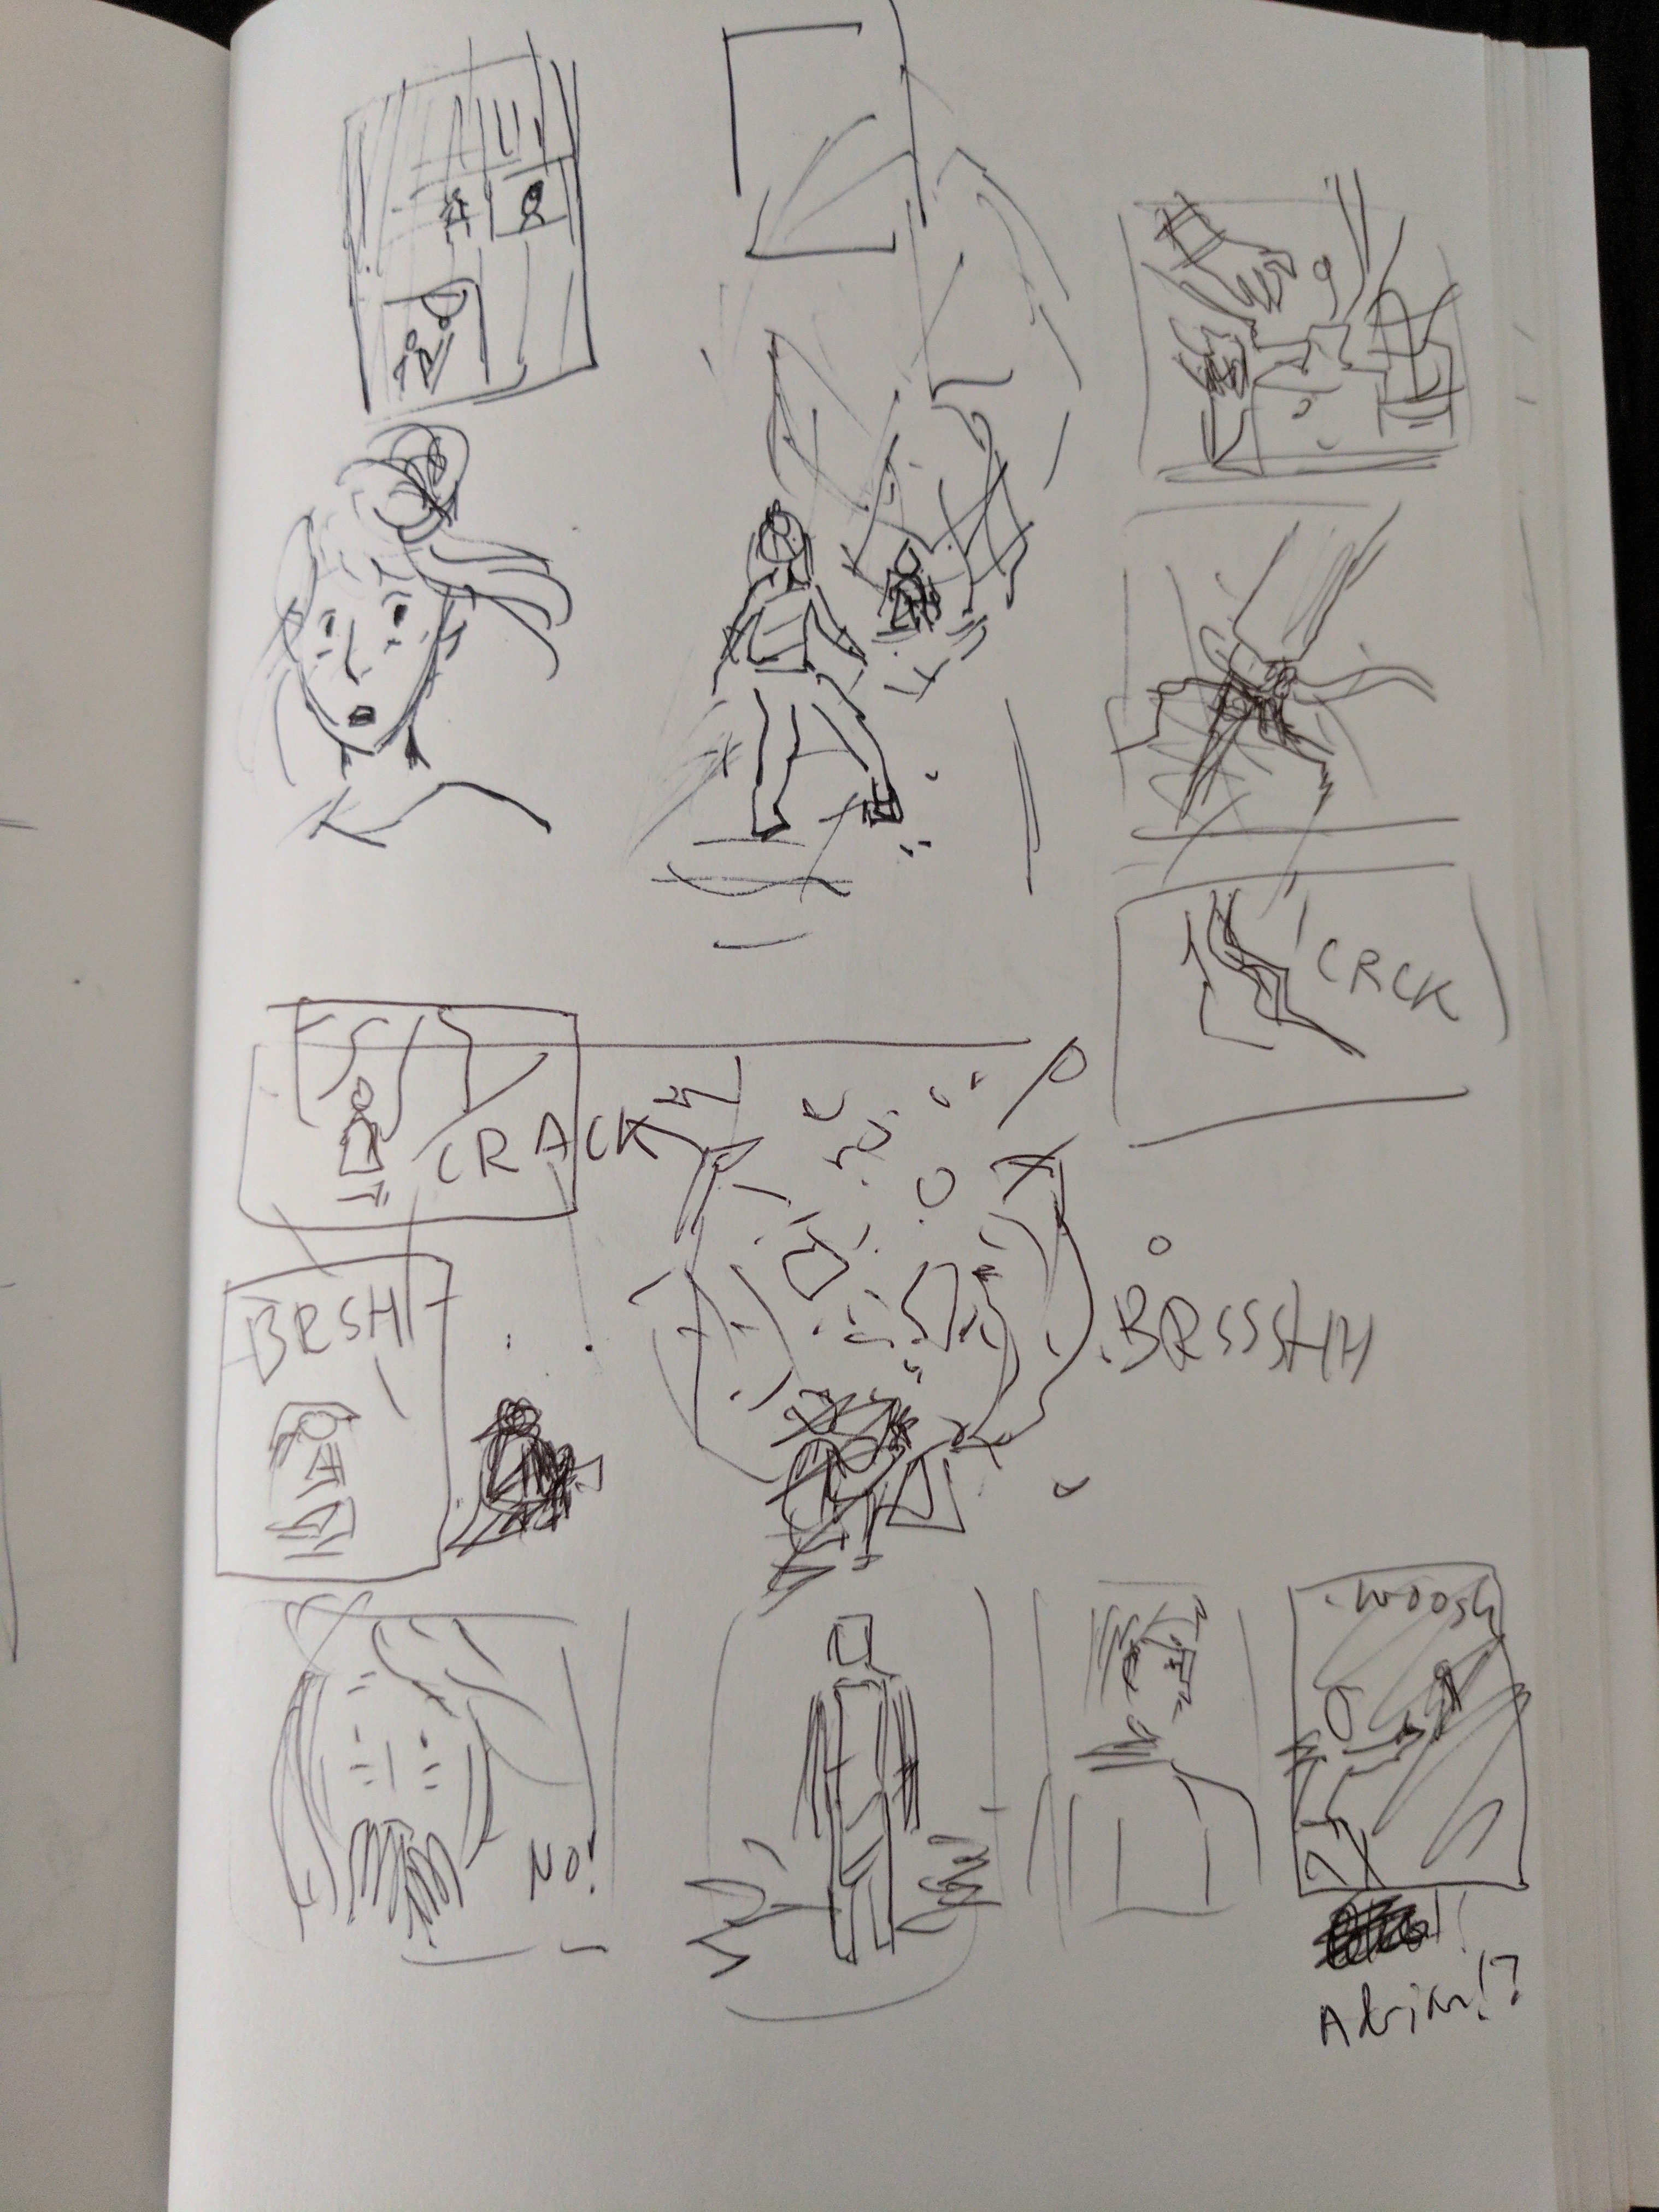 CRCK
CRACK
BRSH
BRSSSHH
NO!
WOOSH
Adrian!?